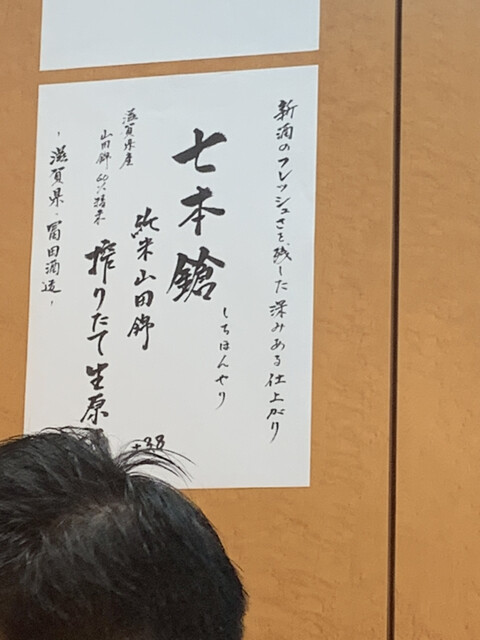 新酒のフレッシュさを残した深みある仕上がり
七本鎗
しちほんやり
純米山田錦
搾りたて生原
+3.8
滋賀県産
山田錦60%精米
-滋賀県・冨田酒造-